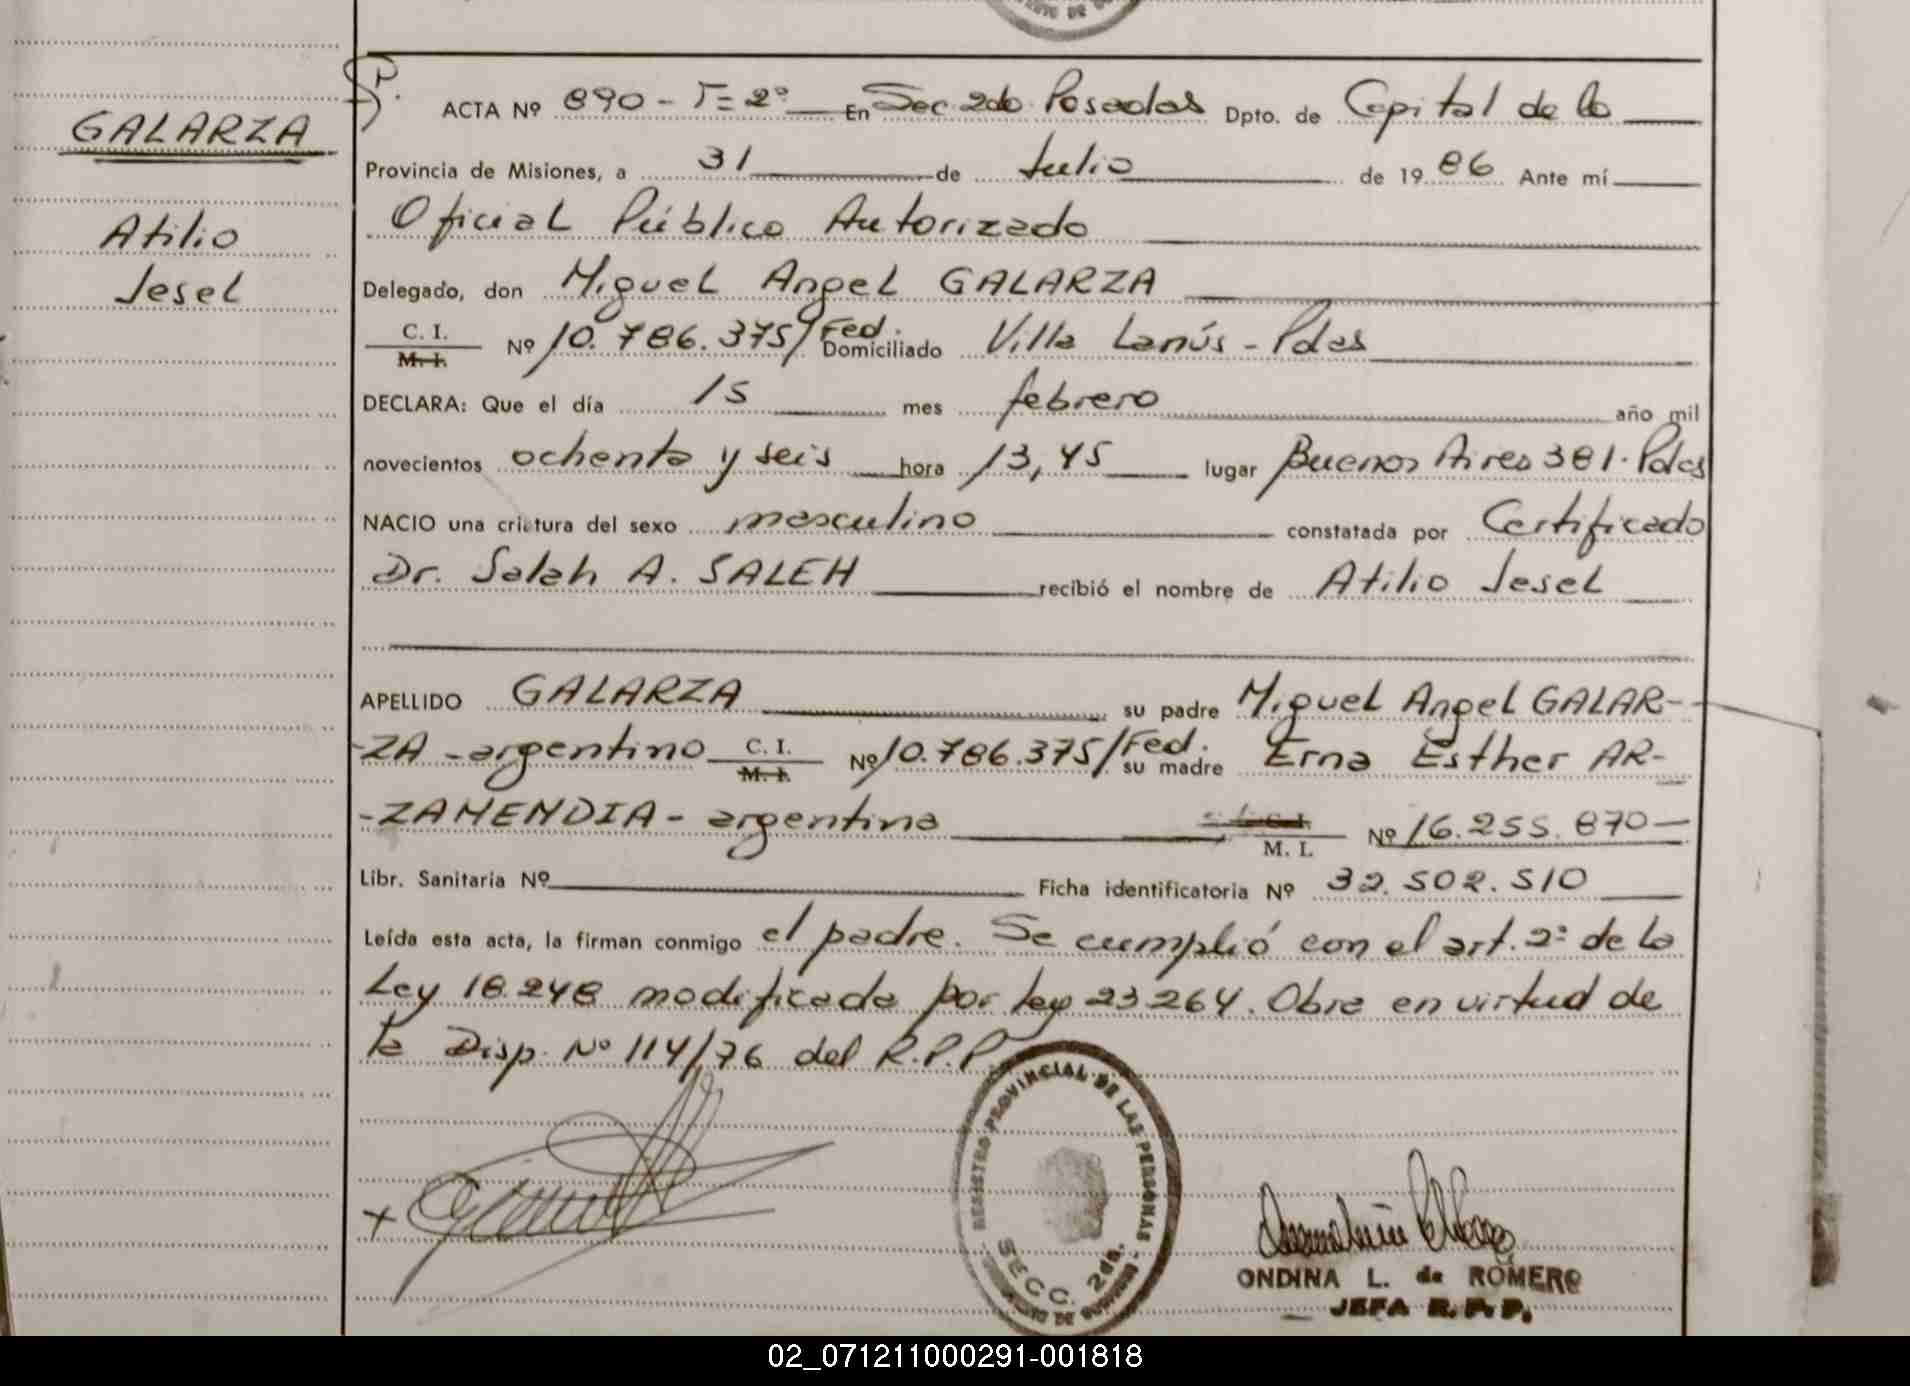 GALARZA
Atilio
Jesel
ACTA Nº 890 - T= 2º En Sec 2do Posadas Dpto. de Capital de la
Provincia de Misiones, a 31 de Julio de 19 86 Ante mí
Oficial Público Autorizado
Delegado, don Miguel Angel GALARZA
C. I.
M. I. Nº 10.786.375/Fed. Domiciliado Villa Lanús - Pdas
DECLARA: Que el día 15 mes febrero año mil
novecientos ochenta y seis hora 13,45 lugar Buenos Aires 381. Pdas
NACIO una criatura del sexo masculino constatada por Certificado
Dr. Salah A. SALEH recibió el nombre de Atilio Jesel
APELLIDO GALARZA su padre Miguel Angel GALAR-
-ZA - argentino C. I. M. I. Nº 10.786.375/Fed. su madre Erna Esther AR-
-ZAMENDIA - argentina C. I. M. I. Nº 16.255.870
Libr. Sanitaria Nº Ficha identificatoria Nº 32.502.510
Leída esta acta, la firman conmigo el padre. Se cumplió con el art. 2º de la
Ley 18.248 modificada por ley 23264. Obra en virtud de
la Disp. Nº 114/76 del R.P.P.
REGISTRO PROVINCIAL DE LAS PERSONAS
SECC. 2da.
ONDINA L. de ROMERO
JEFA R. P. P.
02_071211000291-001818